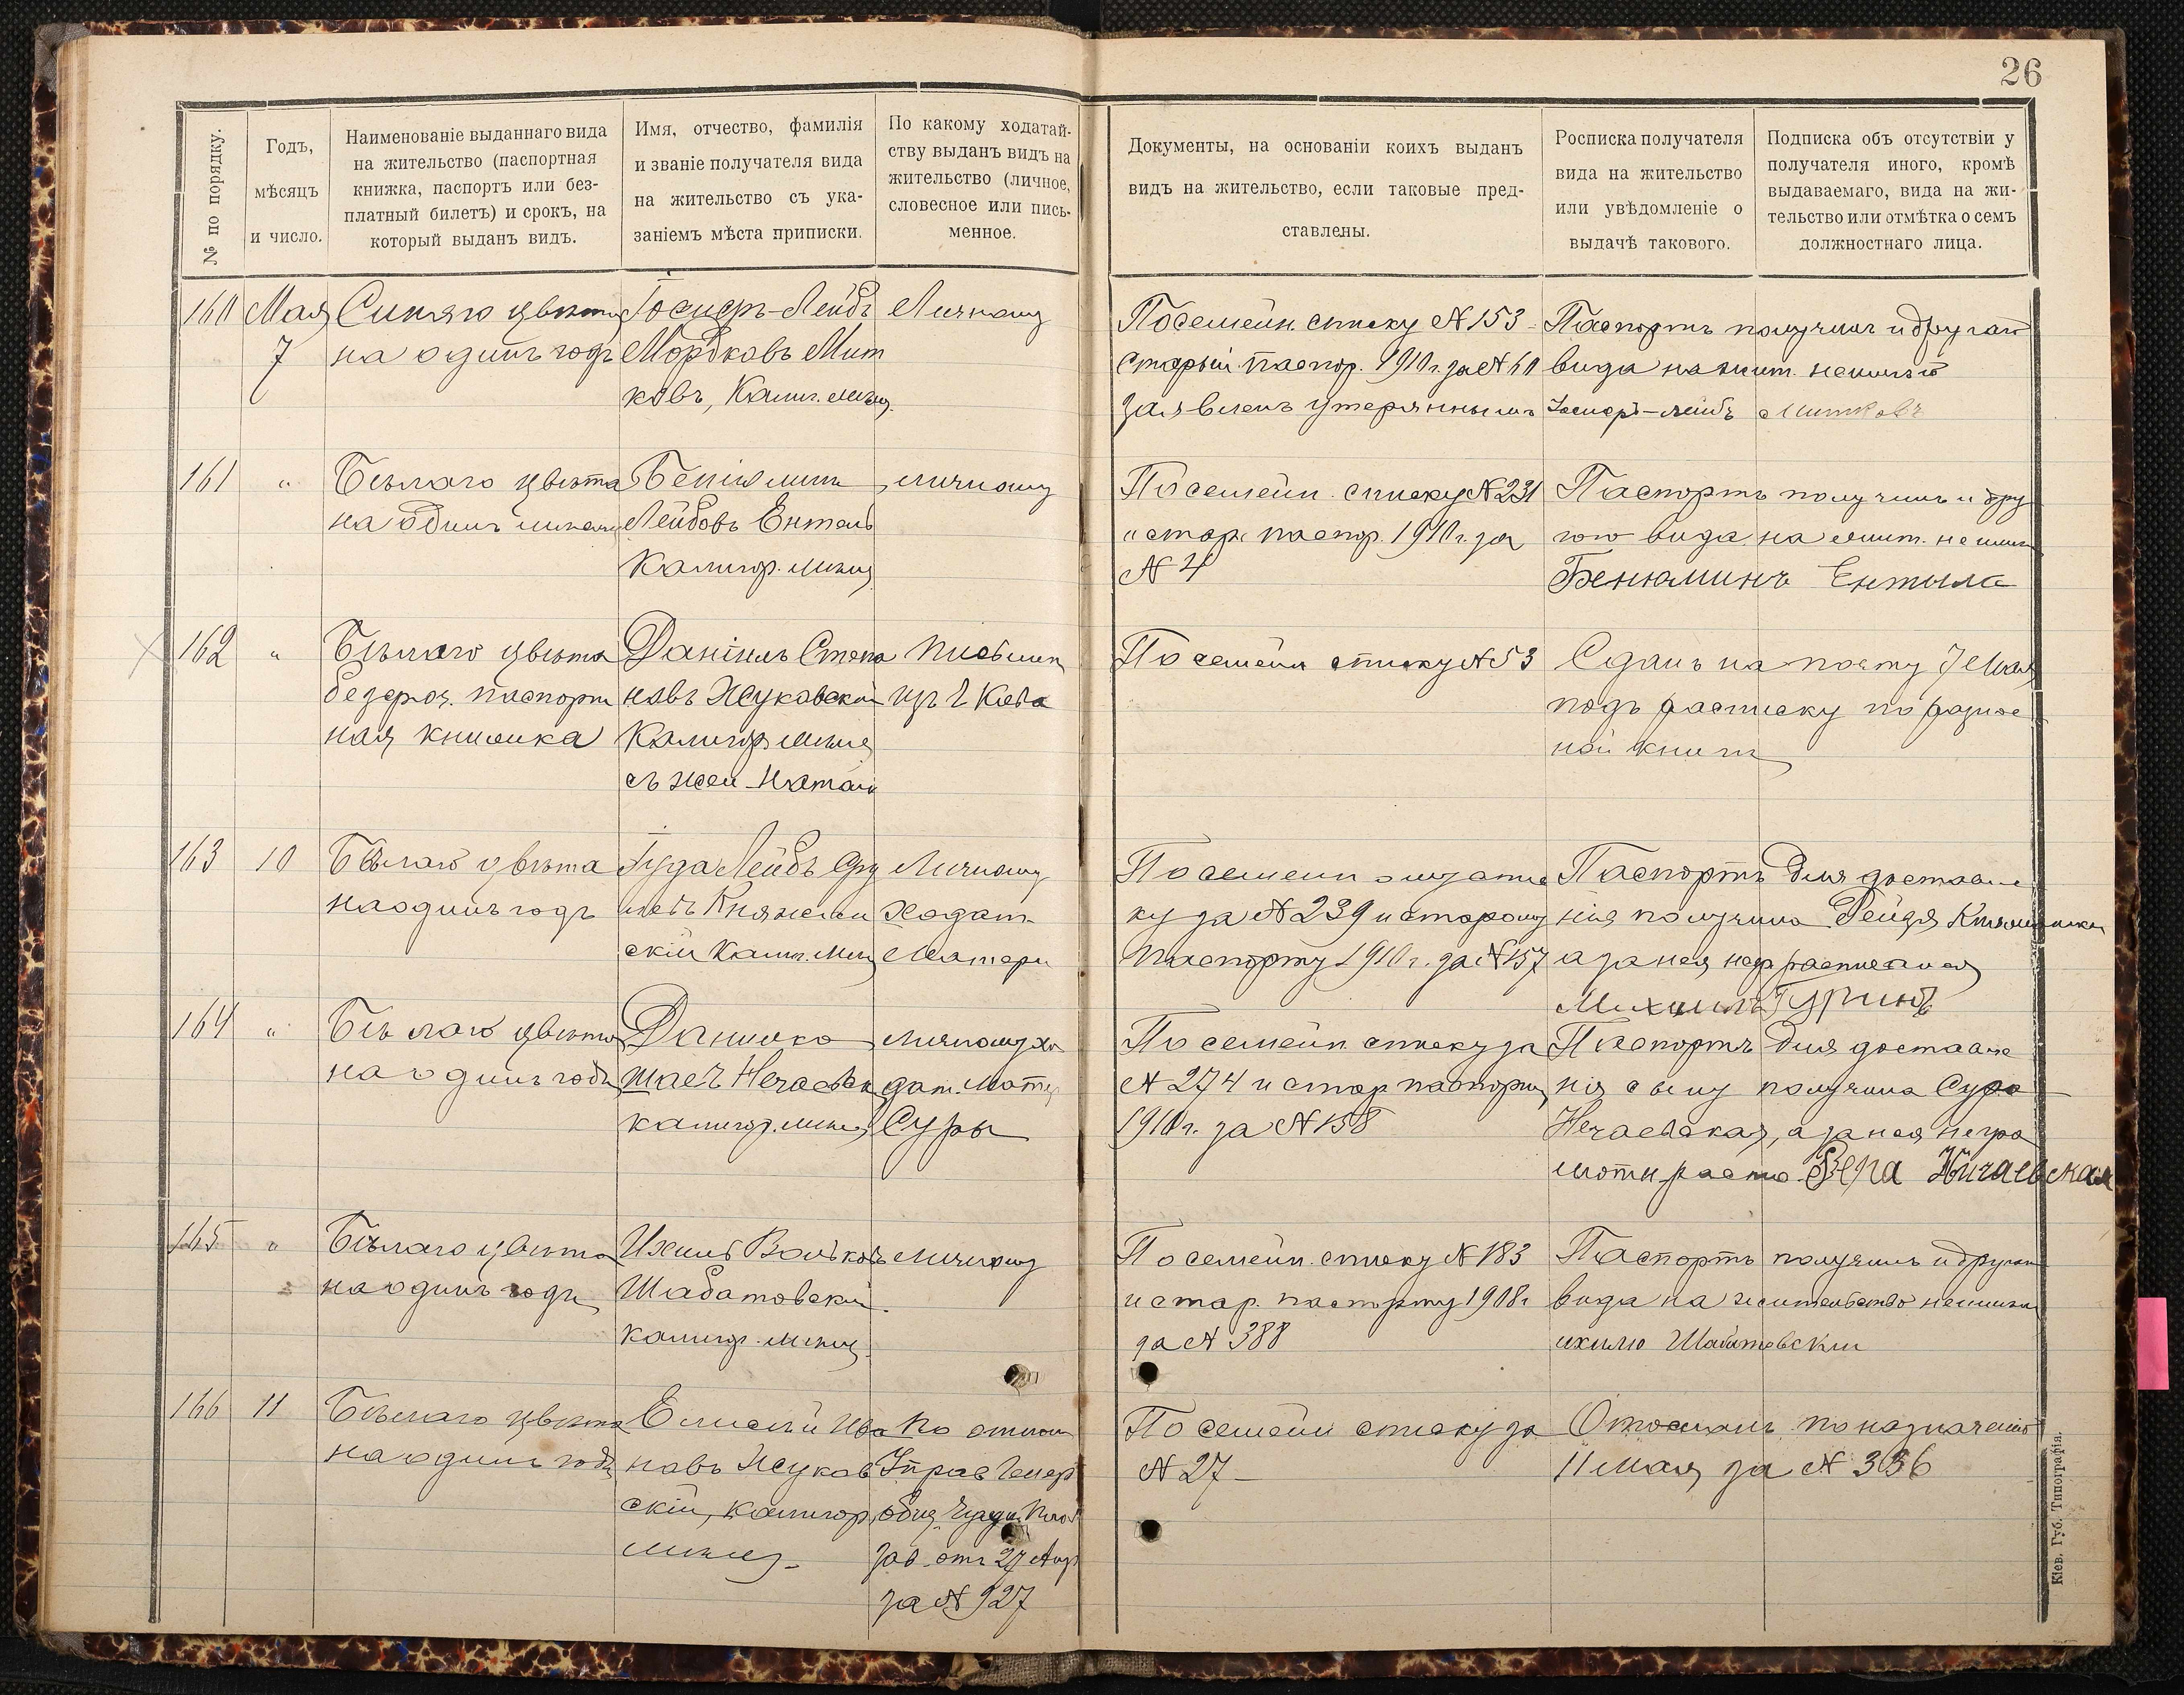 26
№ по порядку.
Годъ,
мѣсяцъ
и число.
Наименованіе выданнаго вида
на жительство (паспортная
книжка, паспортъ или без-
платный билетъ) и срокъ, на
который выданъ видъ.
Имя, отчество, фамилія
и званіе получателя вида
на жительство съ ука-
заніемъ мѣста приписки.
По какому ходатай-
ству выданъ видъ на
жительство (личное,
словесное или пись-
менное.
Документы, на основаніи коихъ выданъ
видъ на жительство, если таковые пред-
ставлены.
Росписка получателя
вида на жительство
или увѣдомленіе о
выдачѣ такового.
Подписка объ отсутствіи у
получателя иного, кромѣ
выдаваемаго, вида на жи-
тельство или отмѣтка о семъ
должностнаго лица.
160
Мая
7
Синяго цвѣта
на одинъ годъ
Іосифъ-Лейбъ
Мордковъ Мит
ковъ, Калиг. мѣщ.
Личному
По семейн. списку № 153
старый паспор. 1910 г. за № 60
заявленъ утеряннымъ
Паспортъ получилъ и другого
вида на жит. не имѣю
Іосифъ-Лейбъ Митковъ
161
"
Бѣлаго цвѣта
на одинъ
Беніяминъ
Лейбовъ Ентель
Калигор. мѣщ.
личному
По семейн. списку № 231
и стар. паспор. 1910 г. за
№ 4
Паспортъ получилъ и дру
гого вида на жит. не имѣю
Бенюминъ
162
"
Бѣлаго цвѣта
безсроч. паспорт
ная книжка
Даніилъ Степа
новъ Жуковскій
Калигор мѣщ.
съ жен.
Письмен
изъ г. Кіева
По семейн списку № 53
Сданъ на почту 7 Мая
подъ расписку по разнос
ной книги
163
10
Бѣлаго цвѣта
на одинъ годъ
Іуда Лейбъ Сру
левъ Княжан
скій Калиг. мѣщ
Личному
ходат.
Матери
По семейн спис
ку за № 239 и старому
паспорту 1910 г. за № 157
Паспортъ для доставле
нія получила Рейзя
а за нея негр расписался
Михаилъ
164
"
Бѣлаго цвѣта
на одинъ годъ
Данилко
Нечаевск
калигор. мѣщ.
личному хо
дат. Матери
Суры
По семейн. списку за
№ 274 и стар паспорту
1910 г. за № 158
Паспортъ для доставле
нія сыну получила Сура
Нечаевская, а за нея негра
мотн распис. Вера Ничаевская
165
"
Бѣлаго цвѣта
на одинъ годъ
Ихилъ Вольковъ
Шабатовскій
калигор. мѣщ.
личному
По семейн. списку № 183
и стар. паспорту 1908 г
за № 388
Паспортъ получилъ и другого
вида на жительство не имѣю
ихилю Шабатовскій
166
11
Бѣлаго цвѣта
на одинъ годъ
Елисей Ива
новъ Жуков
скій, калигор.
мѣщ.
По отнош
Управ
общ.
зав. отъ 27 Апр
за № 927
По семейн списку за
№ 27
Отосланъ по назначенію
11 Мая за № 336
Кіев. Губ. Типографія.